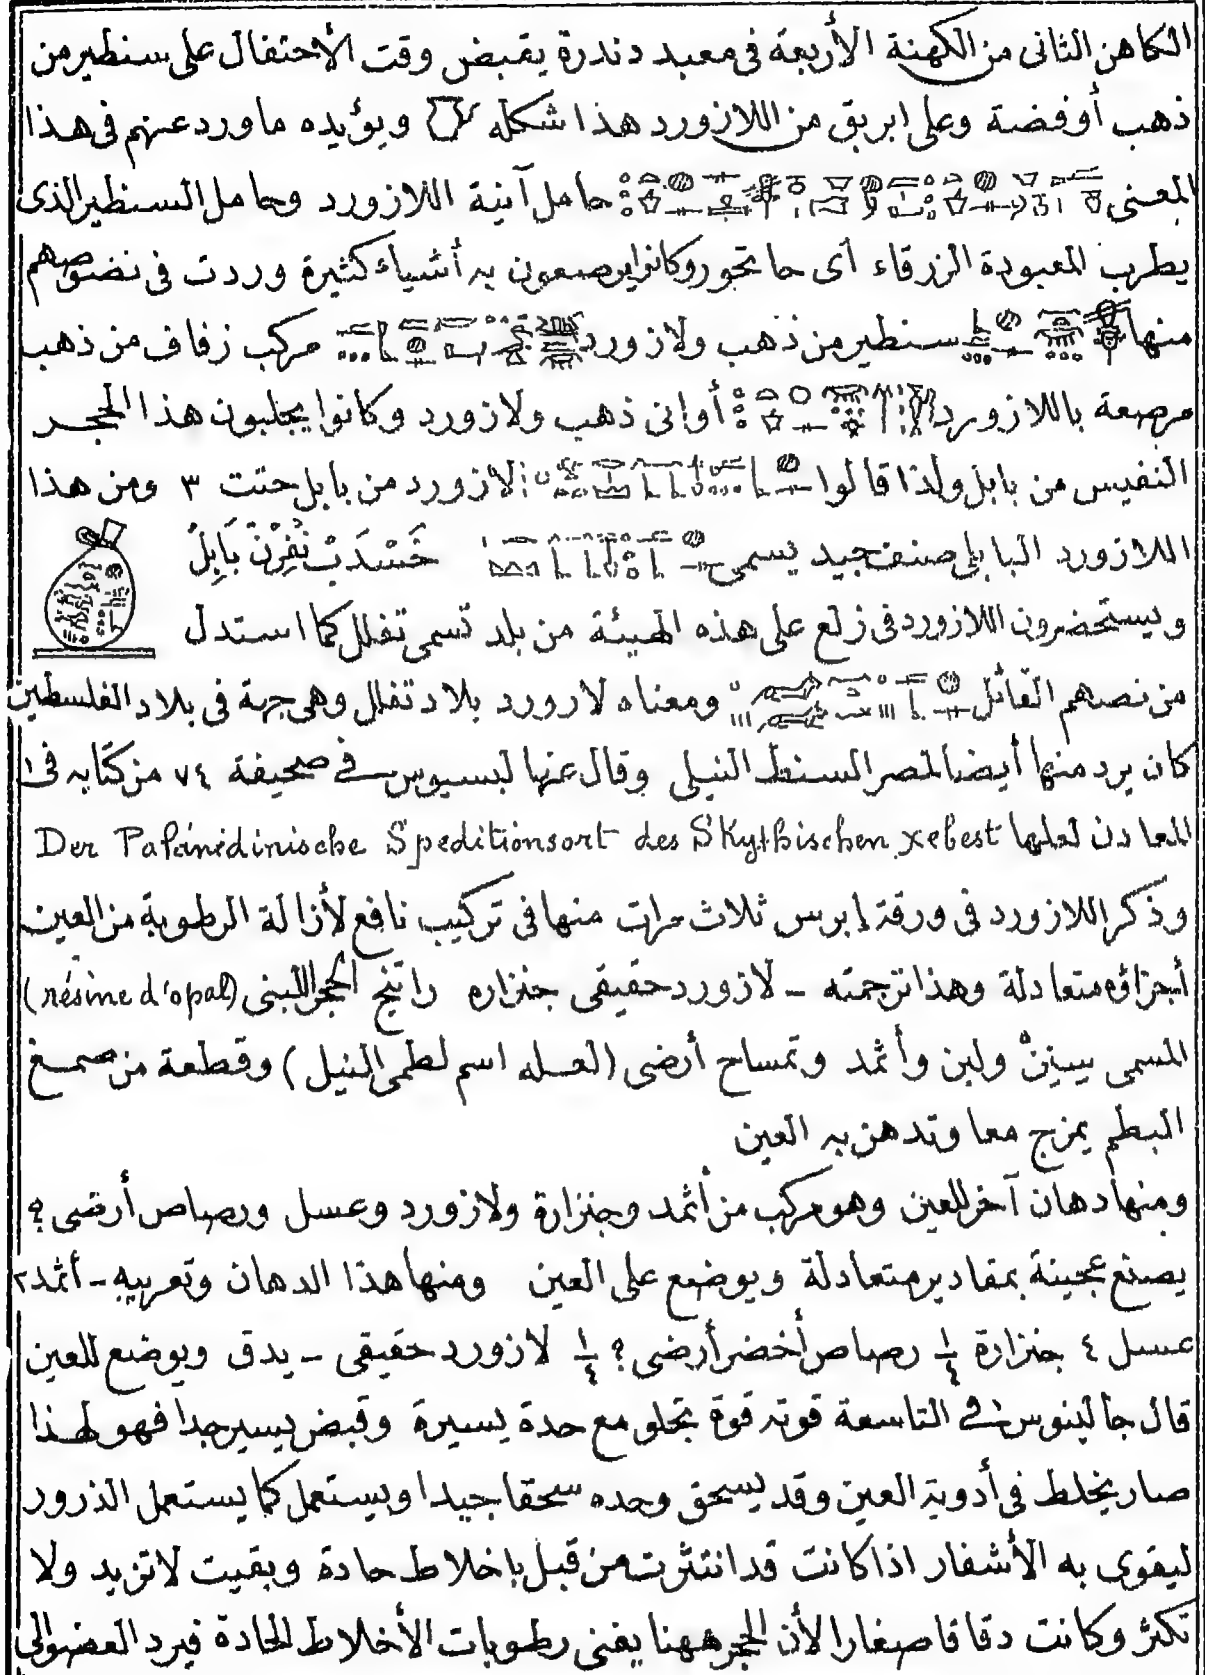 الكاهن الثانى من الكهنة الأربعة فى معبد دندرة يقبض وقت الأحتفال على سنطير من
ذهب أو فضة وعلى ابريق من اللازورد هذا شكله ويؤيده ما ورد عنهم فى هذا
المعنى حامل آنية اللازورد وحامل السنطير الذى
يطرب المعبودة الزرقاء أى حاتحور وكانوا يصنعون به أشياء كثيرة وردت فى نصوصهم
منها سنطير من ذهب ولازورد مركب زفاف من ذهب
مرصعة باللازورد أوانى ذهب ولازورد وكانوا يجلبون هذا الحجر
النفيس من بابل ولذا قالوا لازورد من بابل حتت ٣ ومن هذا
اللازورد البابلى صنف جيد يسمى خَسْدَبْ نُفِرْنْ بَابِلُ
ويستحضرون اللازورد فى زلع على هذه الهيئة من بلد تسمى تفلل كما استدل
من نصهم القائل ومعناه لازورد بلاد تفلل وهى جهة فى بلاد الفلسطين
كان يرد منها أيضا لمصر السنط النيلى وقال عنها لبسيوس فى صحيفة ٧٤ من كتابه فى
المعادن لعلها Der Speditionsort des Skythischen
وذكر اللازورد فى ورقة إبرس ثلاث مرات منها فى تركيب نافع لأزالة الرطوبة من العين
أجزاؤه متعادلة وهذا ترجمته - لازورد حقيقى جنزاره راتنج الحجر اللبنى (résine d'opal)
المسمى ولبن وأثمد وتمساح أرضى (لعله اسم لطمى النيل) وقطعة من صمغ
البطم يمزج معا وتدهن به العين
ومنها دهان آخر للعين وهو مركب من أثمد وجنزارة ولازورد وعسل ورصاص أرضى ؟
يصنع عجينة بمقادير متعادلة ويوضع على العين ومنها هذا الدهان وتعريبه - أثمد ٢
عسل ٤ جنزارة ١/٤ رصاص أخضر أرضى ؟ ١/٤ لازورد حقيقى - يدق ويوضع للعين
قال جالينوس فى التاسعة قوته قوة تجلو مع حدة يسيرة وقبض يسير جدا فهو لهذا
صار يخلط فى أدوية العين وقد يسحق وحده سحقا جيدا ويستعمل كما يستعمل الذرور
ليقوى به الأشفار اذا كانت قد انتثرت من قبل باخلاط حادة وبقيت لا تزيد ولا
تكثر وكانت دقاقا صغارا لأن الحجر ههنا يفنى رطوبات الأخلاط الحادة فيرد العضو الى